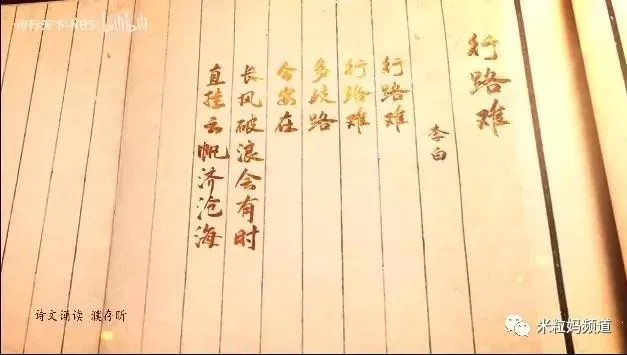 行路难
李白
行路难
行路难
多歧路
今安在
长风破浪会有时
直挂云帆济沧海
诗文诵读 濮存昕
米粒妈频道